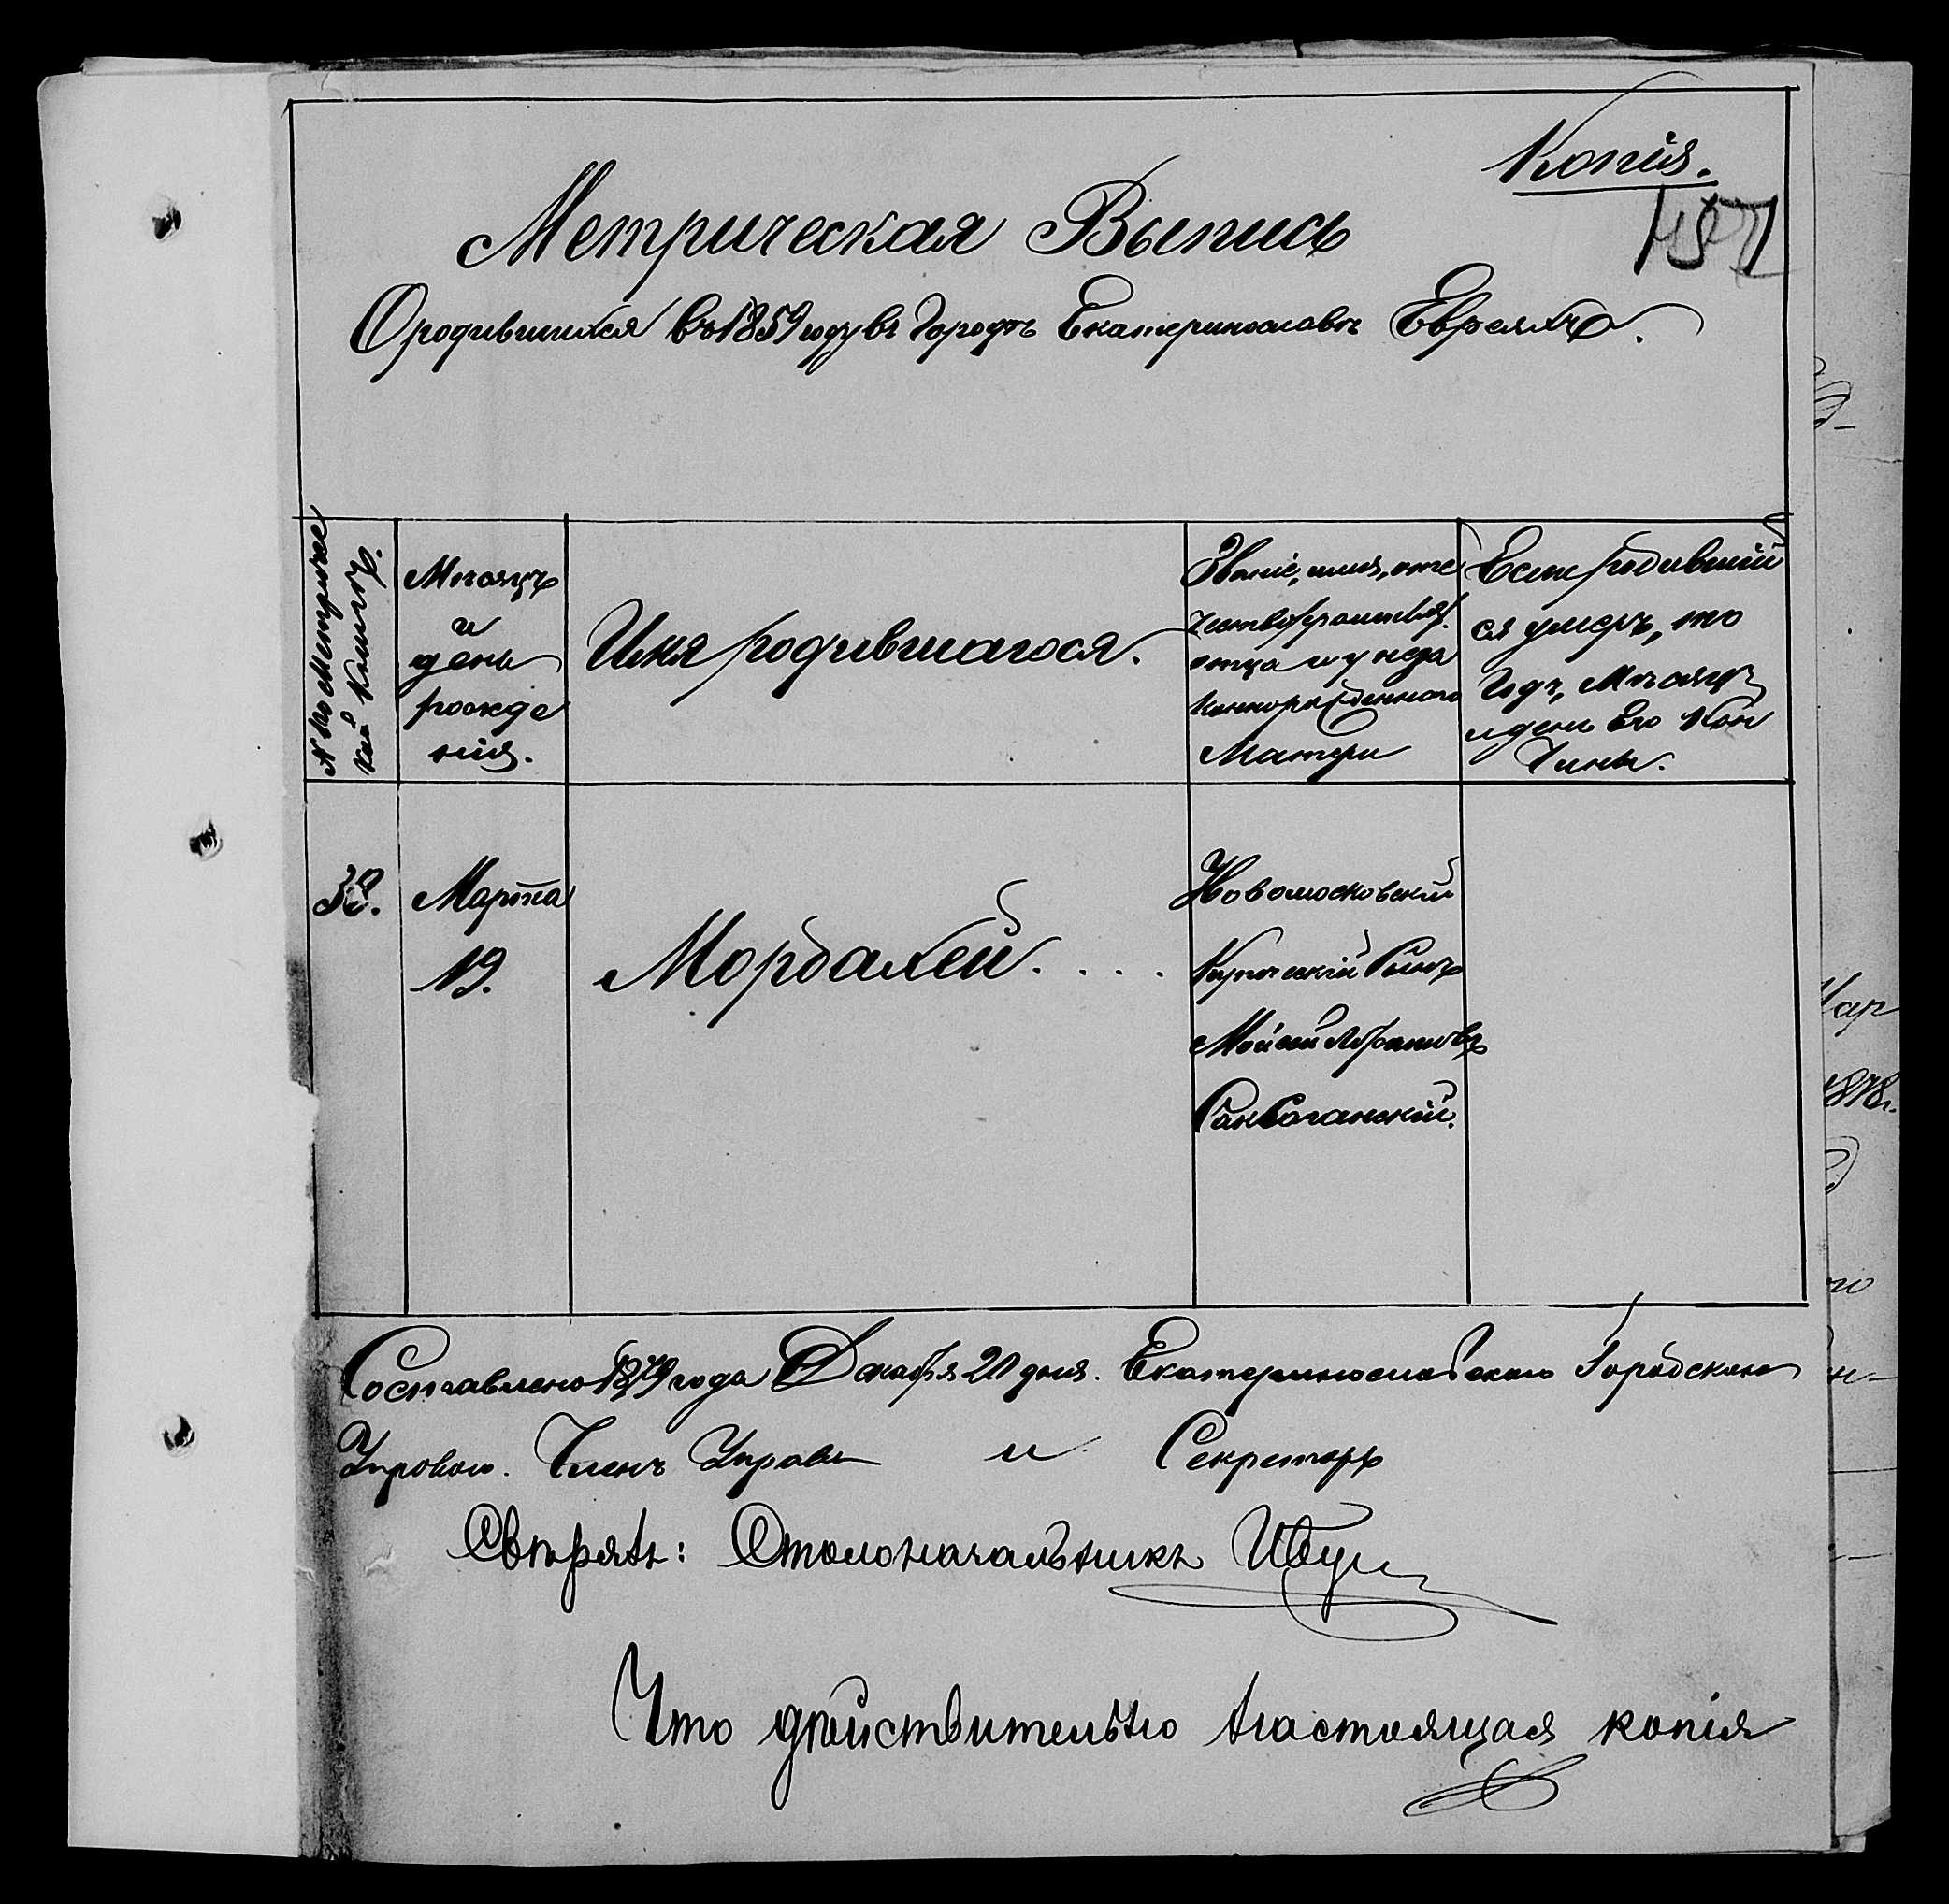 Копія.
Метрическая Выпись
О родившихся въ 1859 году въ Городѣ Екатеринославѣ Евреяхъ.
№ по Метриче
кой Книгѣ.
Мѣсяцъ
и
день
рожде
нія.
Имя родившагося.
Званіе, имя, оте
чество, фамилія
отца и у неза
коннорожденного
Матери
Если родившій
ся умеръ, то
Годъ, Мѣсяцъ
и день Его Кон
чины.
38.
Марта
19.
Мордахей. . . .
Новомосковскій
Купеческій Сынъ
Мойсей Абрамовъ
Саксаганскій.
Составлено 1879 года Декабря 20 дня. Екатеринославского Городского
Управою. Членъ Управы и Секретарь
Свѣрялъ: Столоначальникъ
Что дѣйствительно настоящая копія